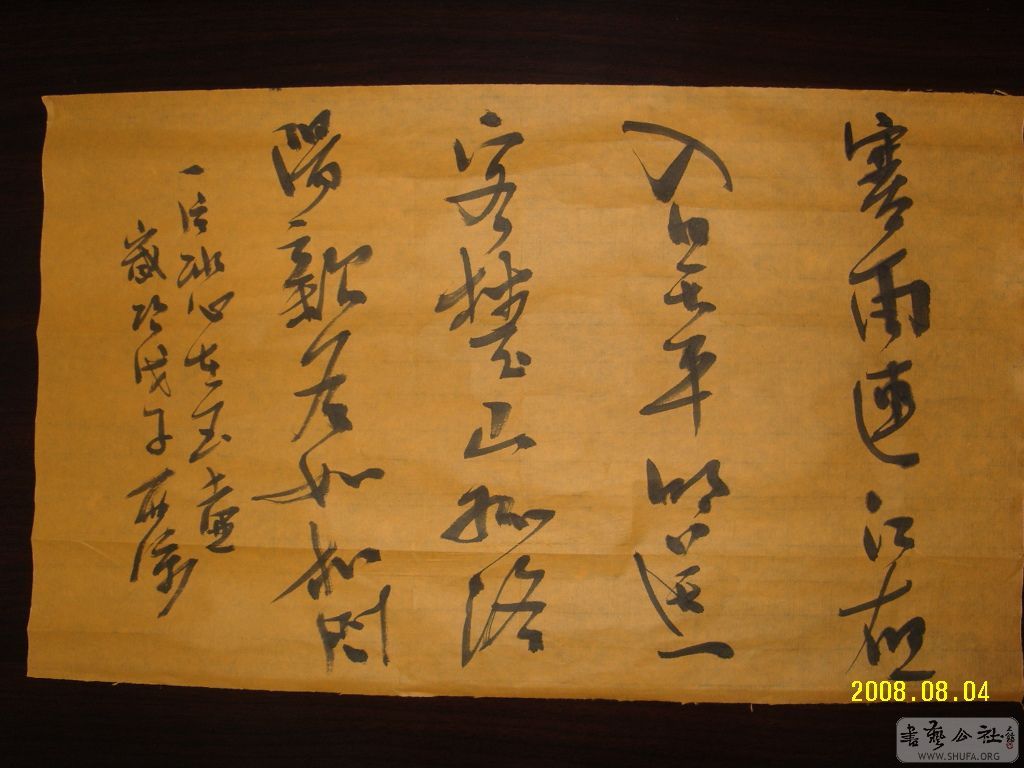 寒雨連江夜
入吳平明送
客楚山孤洛
陽親友如相問
一片冰心在玉壺
歲次戊子
2008.08.04
書藝公社
WWW.SHUFA.ORG